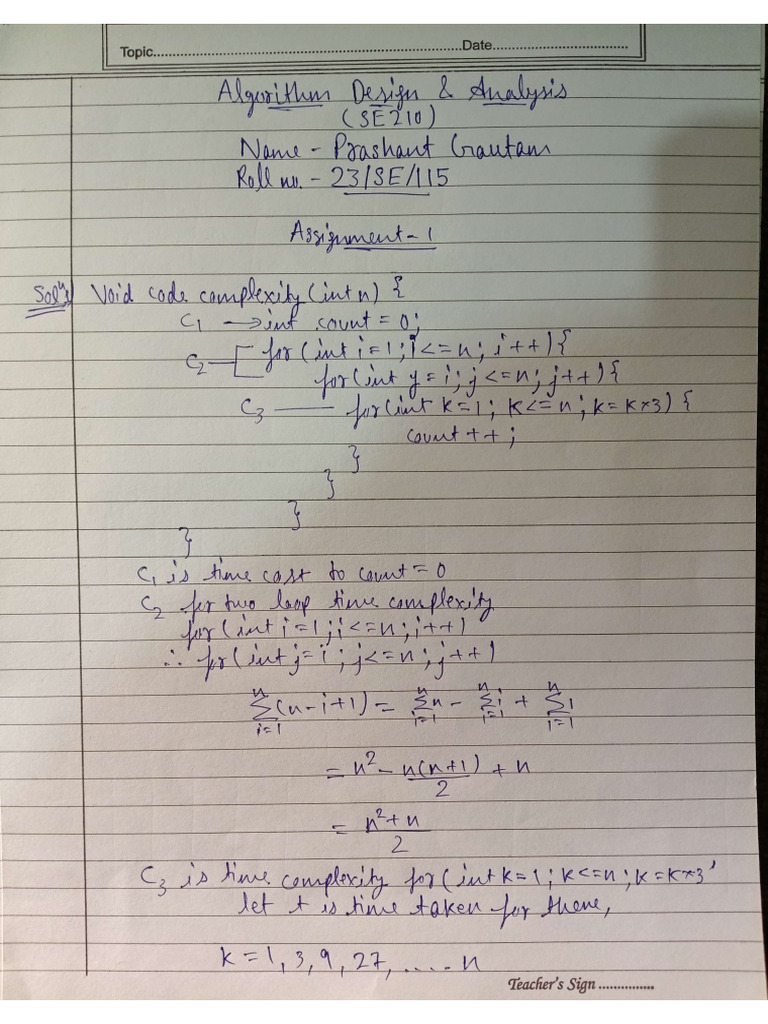 Topic..........................................................................Date................................
Algorithm Design & Analysis
(SE210)
Name - Prashant Gautam
Roll no. - 23/SE/115
Assignment-1
Solⁿ1) Void code complexity (int n) {
C₁ → int count = 0;
C₂ for (int i=1; i<=n; i++) {
for (int y=i; j<=n; j++) {
C₃ for (int k=1; k<=n; k=k*3) {
count ++;
}
}
}
}
C₁ is time cost to count = 0
C₂ for two loop time complexity
for (int i=1; i<=n; i++)
∴ for (int j=i; j<=n; j++)
n∑i=1 (n-i+1) = n∑i=1 n - n∑i=1 i + n∑i=1 1
= n² - n(n+1)/2 + n
= n²+n/2
C₃ is time complexity for (int k=1; k<=n; k=k*3'
let t is time taken for there,
k = 1, 3, 9, 27, ..... n
Teacher's Sign ...............